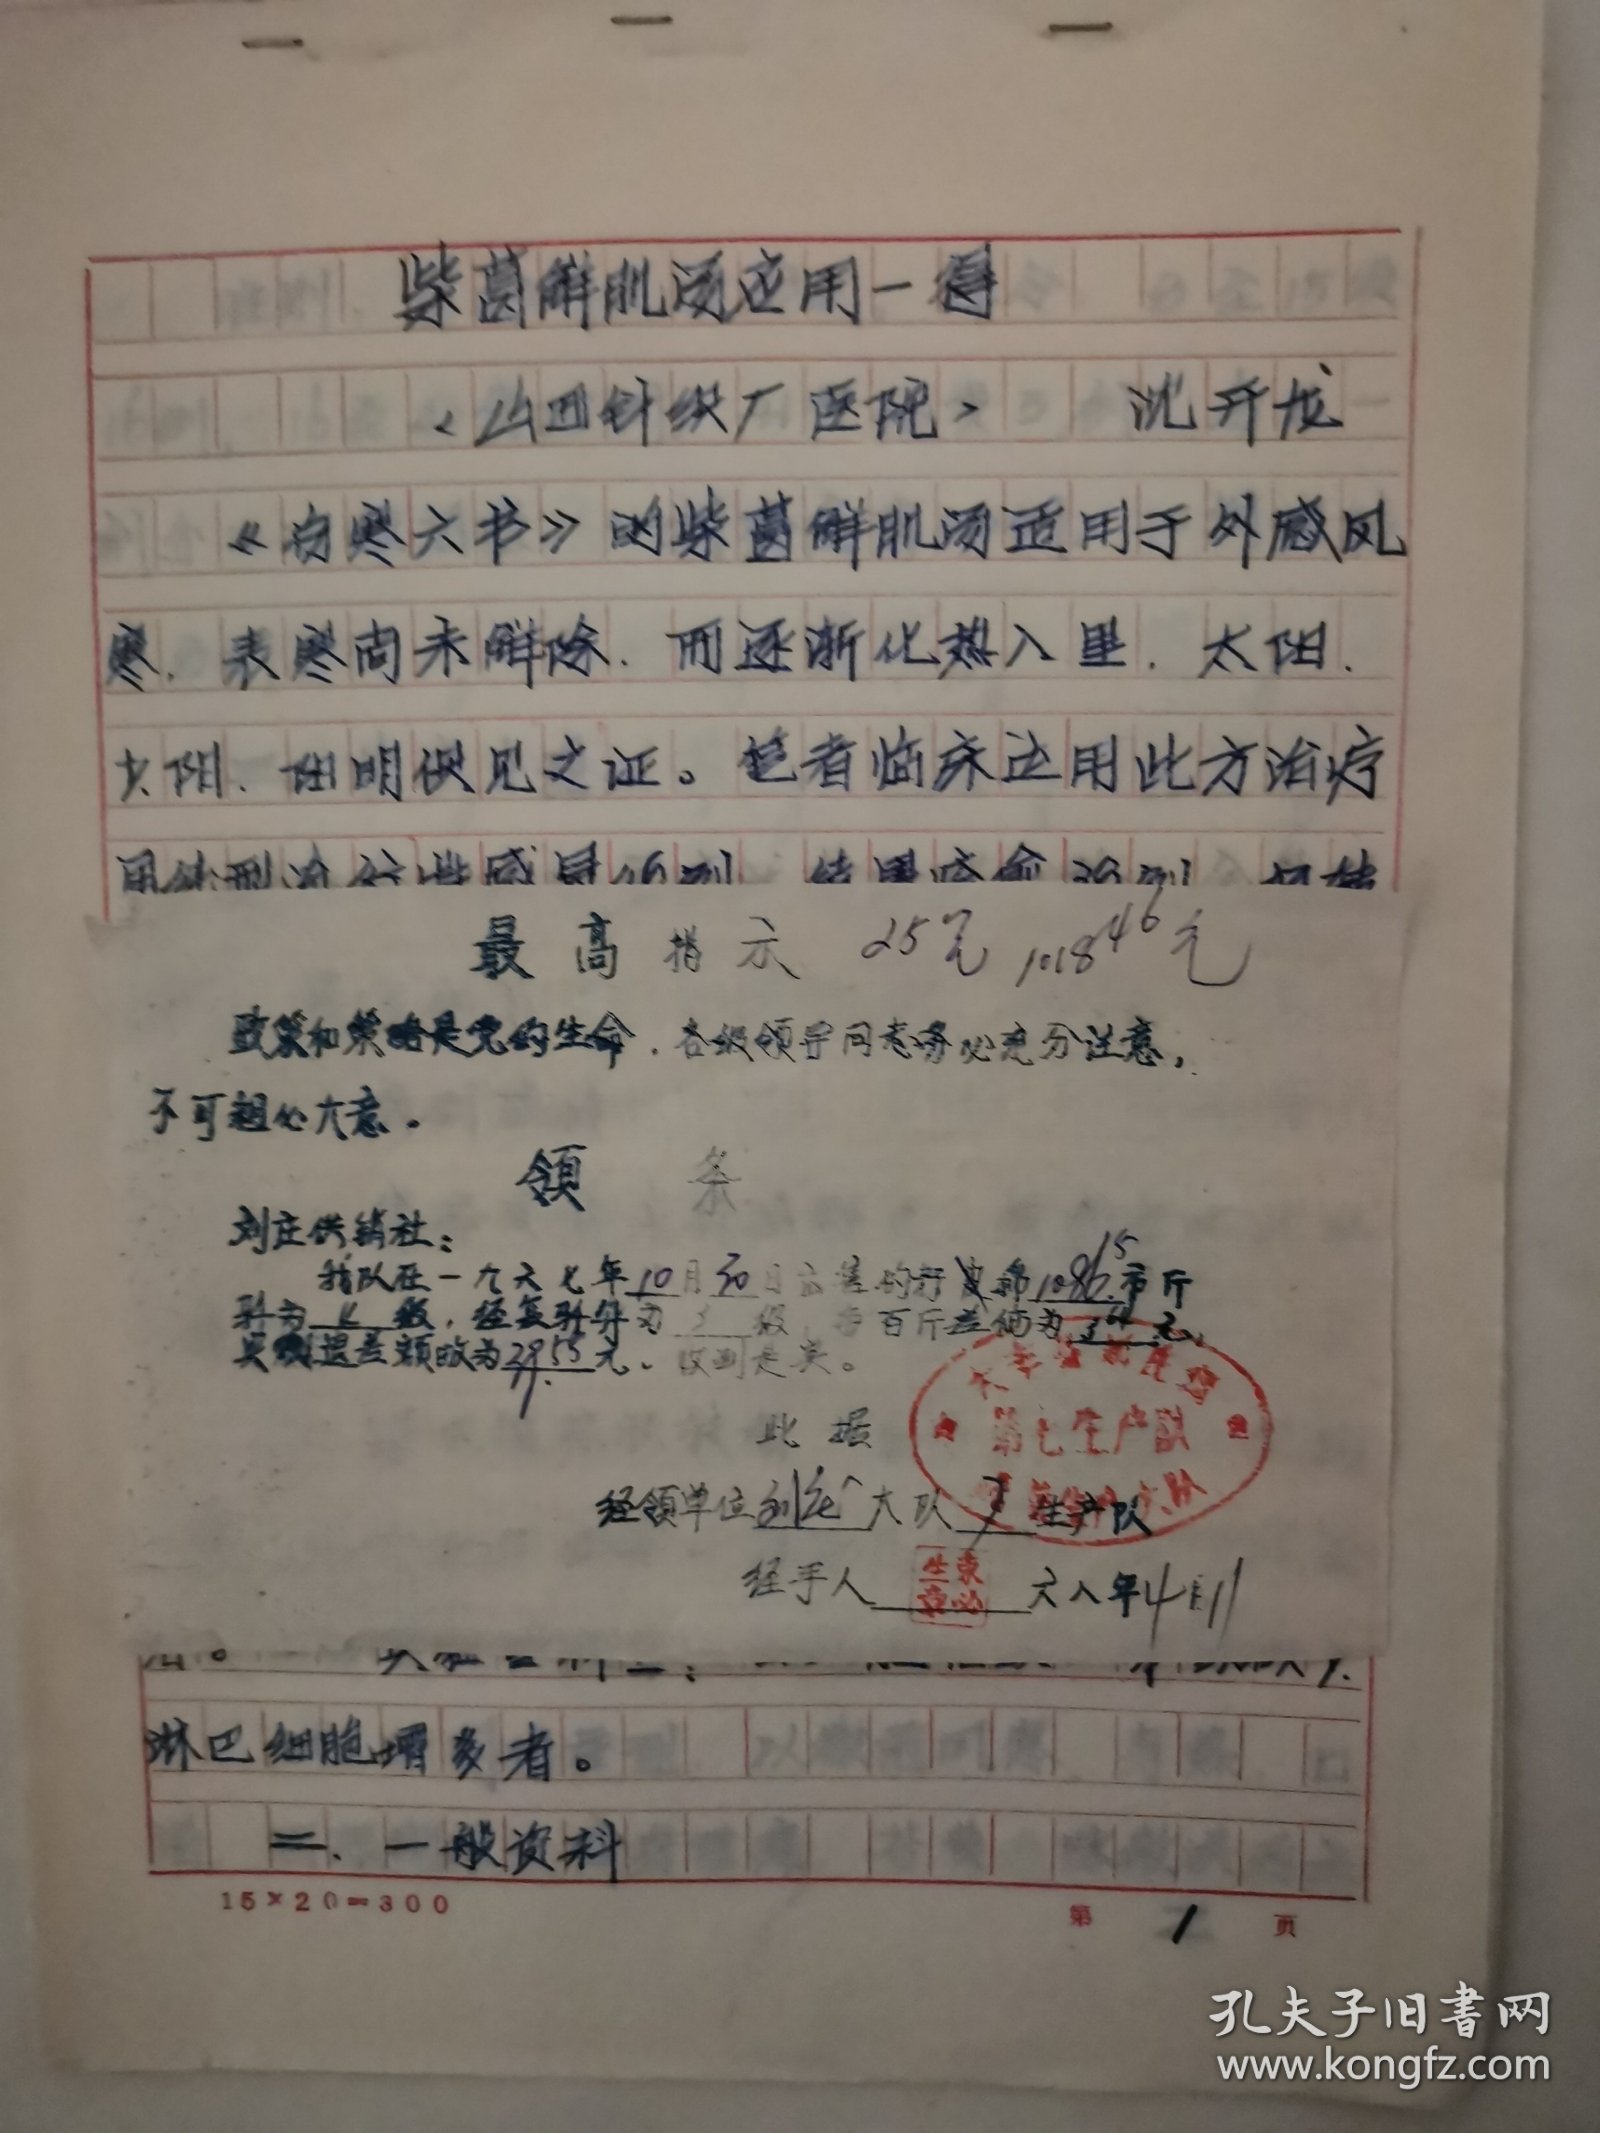 柴葛解肌汤应用一得
<山西针织厂医院> 沈开龙
《伤寒六书》的柴葛解肌汤适用于外感风
寒.表寒尚未解除.而逐渐化热入里.太阳.
少阳.阳明俱见之证。笔者临床运用此方治疗
最高指示 25元 1018.46元
政策和策略是党的生命.各级领导同志务必充分注意,
不可粗心大意。
领条
刘庄供销社:
我队在一九六七年10月30日 市斤
为 级,经复 为 级 百斤差 为 元,
退差额 为39.55元. 收到是实。
此据
第七生产队
经领单位刘庄大队7生产队
经手人 六八年4月11
淋巴细胞增多者。
二.一般资料
15×20=300
第1页
孔夫子旧书网
www.kongfz.com